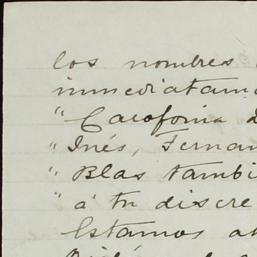 los nombres
inmediatam
"Carofoina
"Inés, Fernan
"Blas tambi
"á tu discre
Estamos